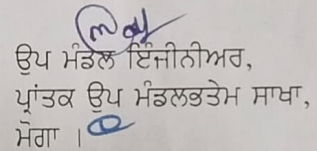 ਉਪ ਮੰਡਲ ਇੰਜੀਨੀਅਰ,
ਪ੍ਰਾਂਤਕ ਉਪ ਮੰਡਲਭਤੇਮ ਸਾਖਾ,
ਮੋਗਾ ।